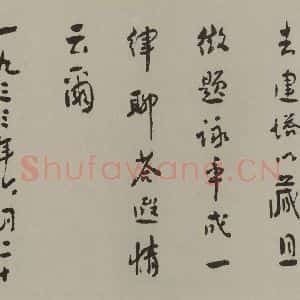 去建塔以藏且
徵題詠率成一
律聊荅遐情
云爾
一九三三年六月二十
Shufawang.CN